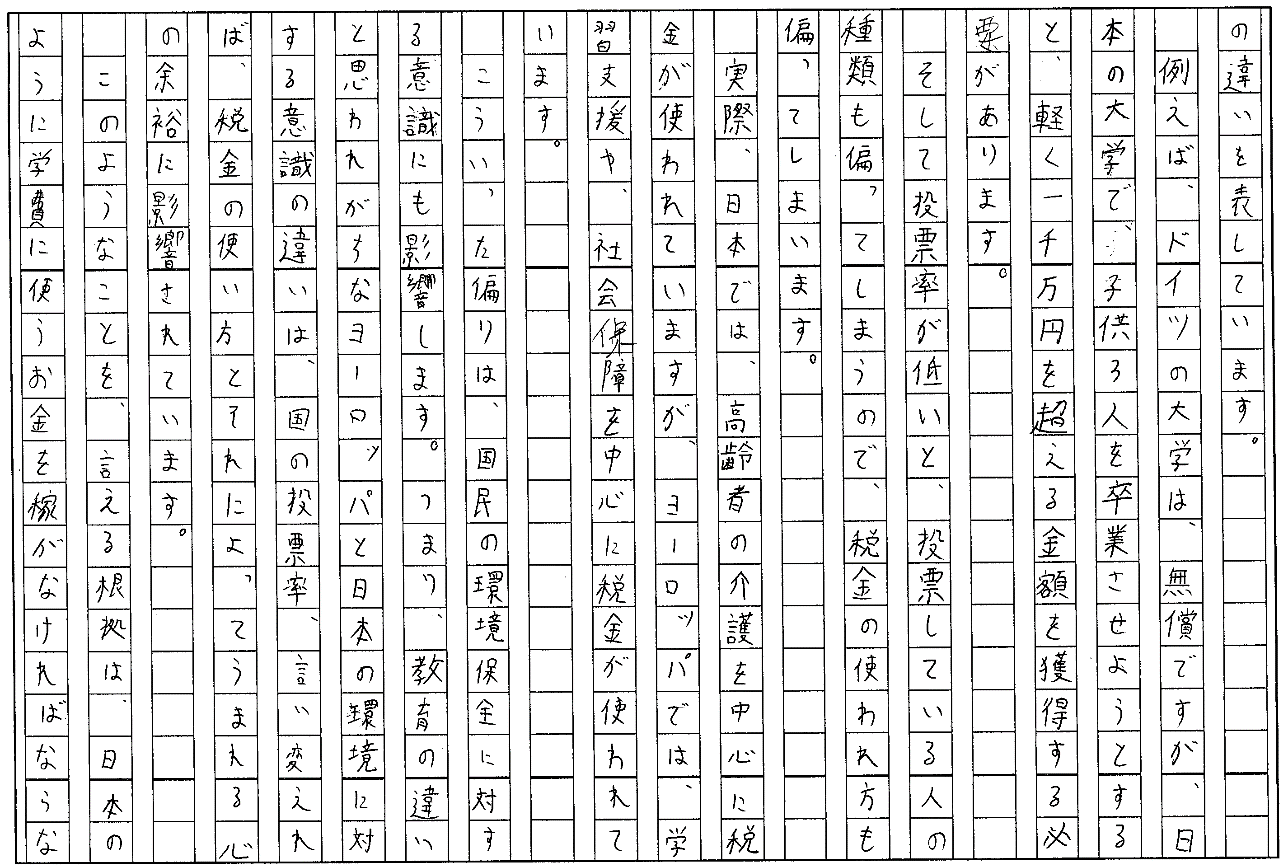 の違いを表しています。
例えば、ドイツの大学は、無償ですが、日
本の大学で、子供3人を卒業させようとする
と、軽く一千万円を超える金額を獲得する必
要があります。
そして投票率が低いと、投票している人の
種類も偏ってしまうので、税金の使われ方も
偏ってしまいます。
実際、日本では、高齢者の介護を中心に税
金が使われていますが、ヨーロッパでは、学
習支援や、社会保障を中心に税金が使われて
います。
こういった偏りは、国民の環境保全に対す
る意識にも影響します。つまり、教育の違い
と思われがちなヨーロッパと日本の環境に対
する意識の違いは、国の投票率、言い変えれ
ば、税金の使い方とそれによってうまれる心
の余裕に影響されています。
このようなことを、言える根拠は、日本の
ように学費に使うお金を稼がなければならな